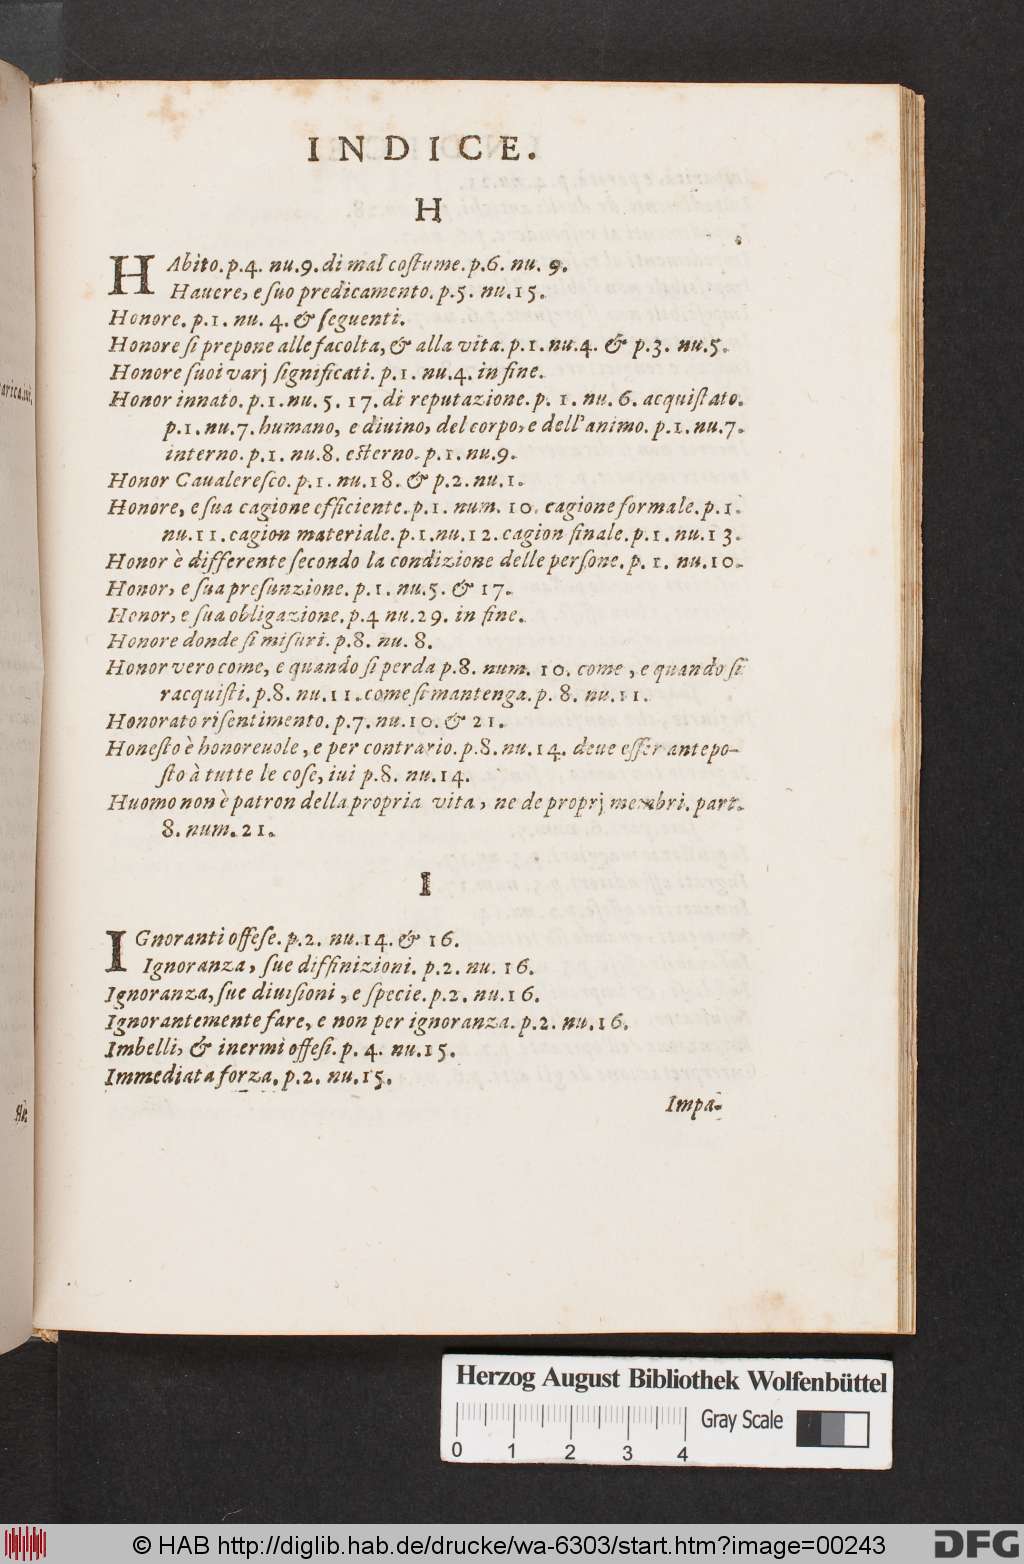 INDICE.
H
HAbito. p.4. nu.9. di mal costume. p.6. nu. 9.
Hauere, e suo predicamento. p.5. nu.15.
Honore. p.1. nu. 4. & seguenti.
Honore si prepone alle facolta, & alla vita. p.1. nu.4. & p.3. nu.5.
Honore suoi varj significati. p.1. nu.4. in fine.
Honor innato. p.1. nu. 5. 17. di reputazione. p. 1. nu. 6. acquistato.
p.1. nu.7. humano, e diuino, del corpo, e dell'animo. p.1. nu.7.
interno. p.1. nu.8. esterno. p.1. nu.9.
Honor Caualeresco. p.1. nu.18. & p.2. nu.1.
Honore, e sua cagione efficiente. p.1. num. 10. cagione formale. p.1.
nu.11. cagion materiale. p.1. nu.12. cagion finale. p.1. nu.13.
Honor è differente secondo la condizione delle persone. p. 1. nu.10.
Honor, e sua presunzione. p.1. nu.5. & 17.
Honor, e sua obligazione. p.4 nu.29. in fine.
Honore donde si misuri. p.8. nu. 8.
Honor vero come, e quando si perda p.8. num. 10. come, e quando si
racquisti. p.8. nu.11. come si mantenga. p. 8. nu.11.
Honorato risentimento. p.7. nu.10. & 21.
Honesto è honoreuole, e per contrario. p.8. nu.14. deue esser antepo-
sto à tutte le cose, iui p.8. nu.14.
Huomo non è patron della propria vita, ne de proprj membri. part.
8. num.21.
I
IGnoranti offese. p.2. nu.14. & 16.
Ignoranza, sue diffinizioni. p.2. nu. 16.
Ignoranza, sue diuisioni, e specie. p.2. nu.16.
Ignorantemente fare, e non per ignoranza. p.2. nu.16.
Imbelli, & inermi offesi. p. 4. nu.15.
Immediata forza. p.2. nu.15.
Impa-
Herzog August Bibliothek Wolfenbüttel
Gray Scale
0 1 2 3 4
© HAB http://diglib.hab.de/drucke/wa-6303/start.htm?image=00243
DFG